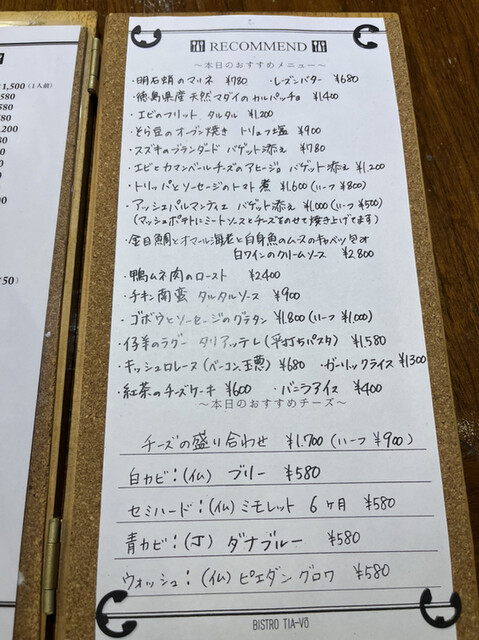 ¥1,500(1人前)
580
580
,200
580
580
580
50)
RECOMMEND
～本日のおすすめメニュー～
・明石蛸のマリネ ¥780 ・レーズンバター ¥680
・徳島県産天然マダイのカルパッチョ ¥1,400
・エビのフリット、タルタル ¥1,200
・そら豆のオーブン焼き トリュフ塩 ¥900
・スズキのブランダード バゲット添え ¥780
・エビとカマンベールチーズのアヒージョ バゲット添え ¥1,200
・トリッパとソーセージのトマト煮 ¥1,600(ハーフ ¥800)
・アッシェパルマンティエ バゲット添え ¥1,000(ハーフ ¥500)
(マッシュポテトにミートソースとチーズをのせて焼き上げてます)
・金目鯛とオマール海老と白身魚のムースのキャベツ包み
白ワインのクリームソース ¥2,800
・鴨ムネ肉のロースト ¥2,400
・チキン南蛮 タルタルソース ¥900
・ゴボウとソーセージのグラタン ¥1,800(ハーフ ¥1,000)
・仔羊のラグー タリアッテレ(平打ちパスタ) ¥1,580
・キッシュロレーヌ(ベーコン、玉葱) ¥680 ・ガーリックライス ¥1300
・紅茶のチーズケーキ ¥600 ・バニラアイス ¥400
～本日のおすすめチーズ～
チーズの盛り合わせ ¥1,700(ハーフ ¥900)
白カビ:(仏) ブリー ¥580
セミハード:(仏) ミモレット 6ヶ月 ¥580
青カビ:(丁) ダナブルー ¥580
ウォッシュ:(仏) ピエダングロワ ¥580
BISTRO TIA-VÕ